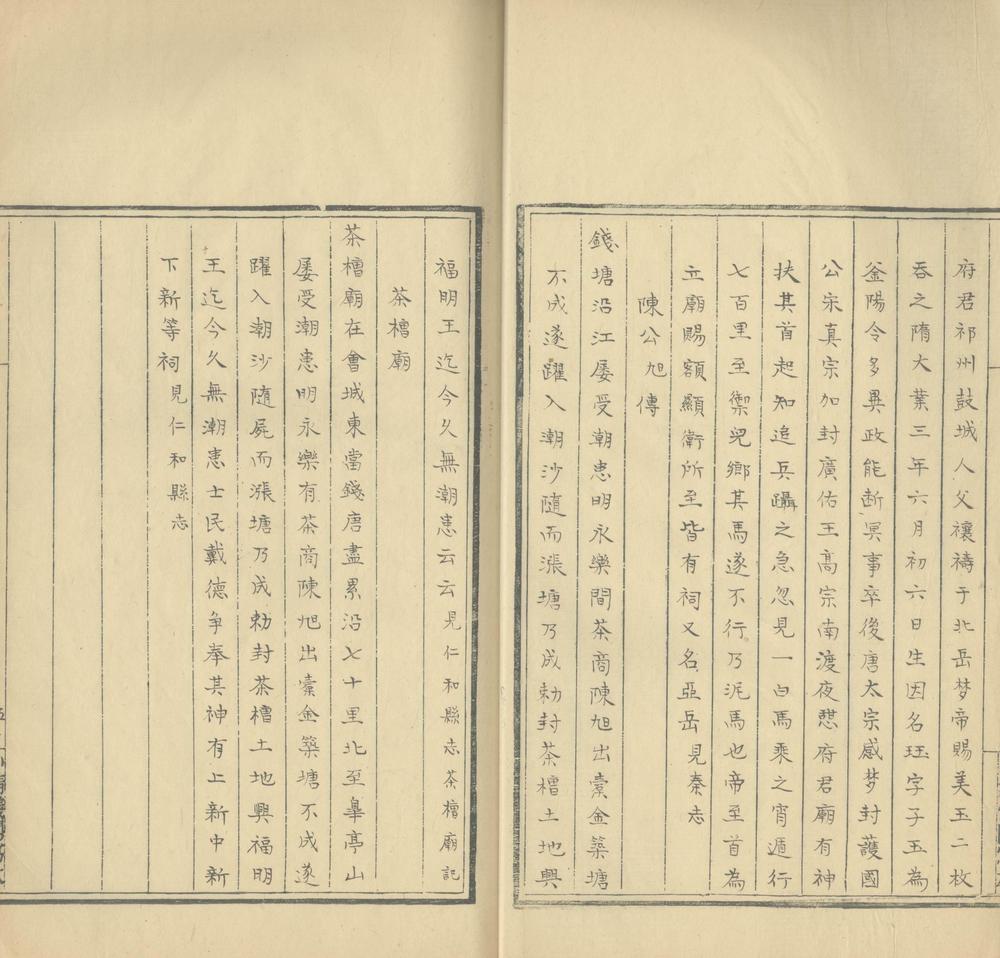 府君祁州鼓城人父禳禱于北岳梦帝賜美玉二枚
吞之隋大業三年六月初六日生因名珏字子玉為
釜陽令多異政能断冥事卒後唐太宗感梦封護國
公宋真宗加封廣佑王高宗南渡夜憇府君廟有神
扶其首起知追兵躡之急忽見一白馬乘之宵遁行
七百里至禦兒鄉其馬遂不行乃泥馬也帝至首為
立廟賜額顯衛所至皆有祠又名亞岳見秦志
陳公旭傳
錢塘沿江屡受潮患明永樂間茶商陳旭出橐金築塘
不成遂躍入潮沙隨而漲塘乃成勅封茶槽土地興
福明王迄今久無潮患云云見仁和縣志茶槽廟記
茶槽廟
茶槽廟在會城東當錢唐盡累沿七十里北至臯亭山
屡受潮患明永樂有茶商陳旭出橐金築塘不成遂
躍入潮沙隨屍而漲塘乃成勅封茶槽土地興福明
王迄今久無潮患士民戴德争奉其神有上新中新
下新等祠見仁和縣志